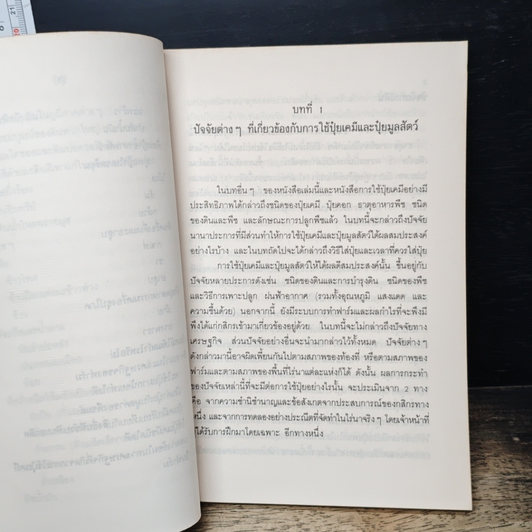 บทที่ 1
ปัจจัยต่างๆ ที่เกี่ยวข้องกับการใช้ปุ๋ยเคมีและปุ๋ยมูลสัตว์
ในบทอื่นๆ ของหนังสือเล่มนี้และหนังสือการใช้ปุ๋ยเคมีอย่างมี
ประสิทธิภาพได้กล่าวถึงชนิดของปุ๋ยเคมี ปุ๋ยคอก ธาตุอาหารพืช ชนิด
ของดินและพืช และลักษณะการปลูกพืชแล้ว ในบทนี้จะกล่าวถึงปัจจัย
นานาประการที่มีส่วนทำให้การใช้ปุ๋ยเคมีและปุ๋ยมูลสัตว์ได้ผลสมประสงค์
อย่างไรบ้าง และในบทถัดไปจะได้กล่าวถึงวิธีใส่ปุ๋ยและเวลาที่ควรใส่ปุ๋ย
การใช้ปุ๋ยเคมีและปุ๋ยมูลสัตว์ให้ได้ผลดีสมประสงค์นั้น ขึ้นอยู่กับ
ปัจจัยหลายประการดังเช่น ชนิดของดินและการบำรุงดิน ชนิดของพืช
และวิธีการเพาะปลูก ฝนฟ้าอากาศ (รวมทั้งอุณหภูมิ แสงแดด และ
ความชื้นด้วย) นอกจากนี้ ยังมีระบบการทำฟาร์มและผลกำไรที่จะพึงมี
พึงได้แก่กสิกรเข้ามาเกี่ยวข้องอยู่ด้วย ในบทนี้จะไม่กล่าวถึงปัจจัยทาง
เศรษฐกิจ ส่วนปัจจัยอย่างอื่นจะนำมากล่าวไว้ทั้งหมด ปัจจัยต่างๆ
ดังกล่าวมานี้อาจผิดเพี้ยนกันไปตามสภาพของท้องที่ หรือตามสภาพของ
ฟาร์มและตามสภาพของพื้นที่ไร่นาแต่ละแห่งก็ได้ ดังนั้น ผลการกระทำ
ของปัจจัยเหล่านี้ที่จะมีต่อการใช้ปุ๋ยอย่างไรนั้น จะประเมินจาก 2 ทาง
คือ จากความชำนิชำนาญและข้อสังเกตจากประสบการณ์ของกสิกรทาง
หนึ่ง และจากการทดลองอย่างประณีตที่จัดทำในไร่นาจริงๆ โดยเจ้าหน้าที่
ที่ได้รับการฝึกมาโดยเฉพาะ อีกทางหนึ่ง